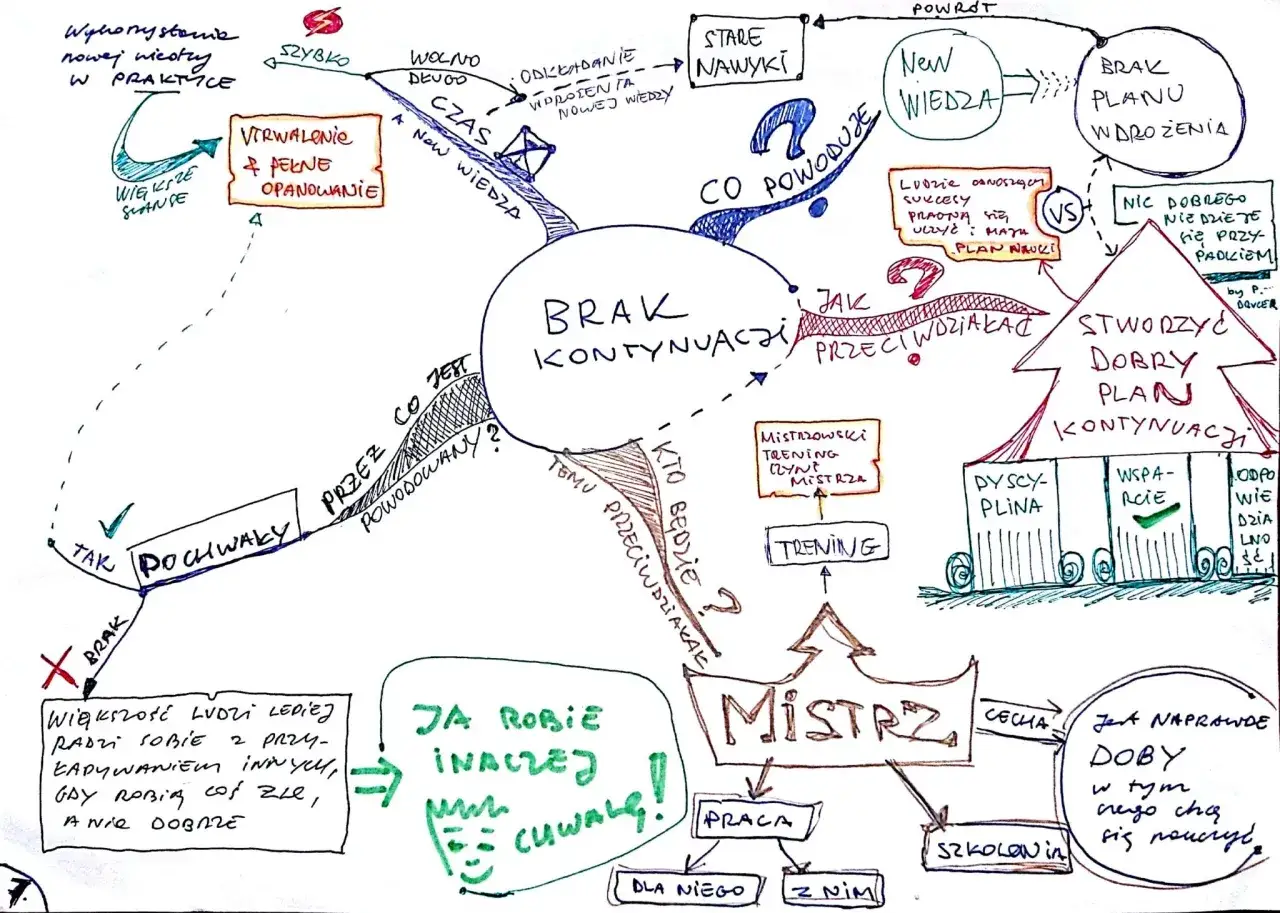 Wykorzystanie
nowej wiedzy
W PRAKTYCE
SZYBKO
WOLNO
DŁUGO
ODKŁADANIE
WDROŻENIA
NOWEJ WIEDZY
STARE
NAWYKI
POWRÓT
NEW
WIEDZA
BRAK
PLANU
WDROŻENIA
WIĘKSZE
SZANSE
UTRWALENIE
& PEŁNE
OPANOWANIE
CZAS
A NEW WIEDZA
CO POWODUJE
?
LUDZIE ODNOSZĄCY
SUKCESY
PRAGNĄ SIĘ
UCZYĆ i MAJĄ
PLAN NAUKI
VS
NIC DOBREGO
NIE DZIEJE
SIĘ PRZY-
PADKIEM
by P.
DRUCER
BRAK
KONTYNUACJI
JAK
PRZECIWDZIAŁAĆ
?
STWORZYĆ
DOBRY
PLAN
KONTYNUACJI
DYSCY-
PLINA
WSPA-
RCIE
ODPO
WIE
DZIA
LNO
ŚĆ
PRZEZ CO JEST
POWODOWANY?
POCHWAŁY
TAK
BRAK
WIĘKSZOŚĆ LUDZI LEPIEJ
RADZI SOBIE Z PRZY-
ŁAPYWANIEM INNYCH,
GDY ROBIĄ COŚ ŹLE,
A NIE DOBRZE
JA ROBIE
INACZEJ
CHWALĘ!
KTO BĘDZIE ?
TEMU PRZECIWDZIAŁAŁ
MISTRZOWSKI
TRENING
CZYNI
MISTRZA
TRENING
MISTRZ
CECHA
JEST NAPRAWDE
DOBY
w tym
czego chcą
się nauczyć
PRACA
DLA NIEGO
Z NIM
SZKOLENIA
7.